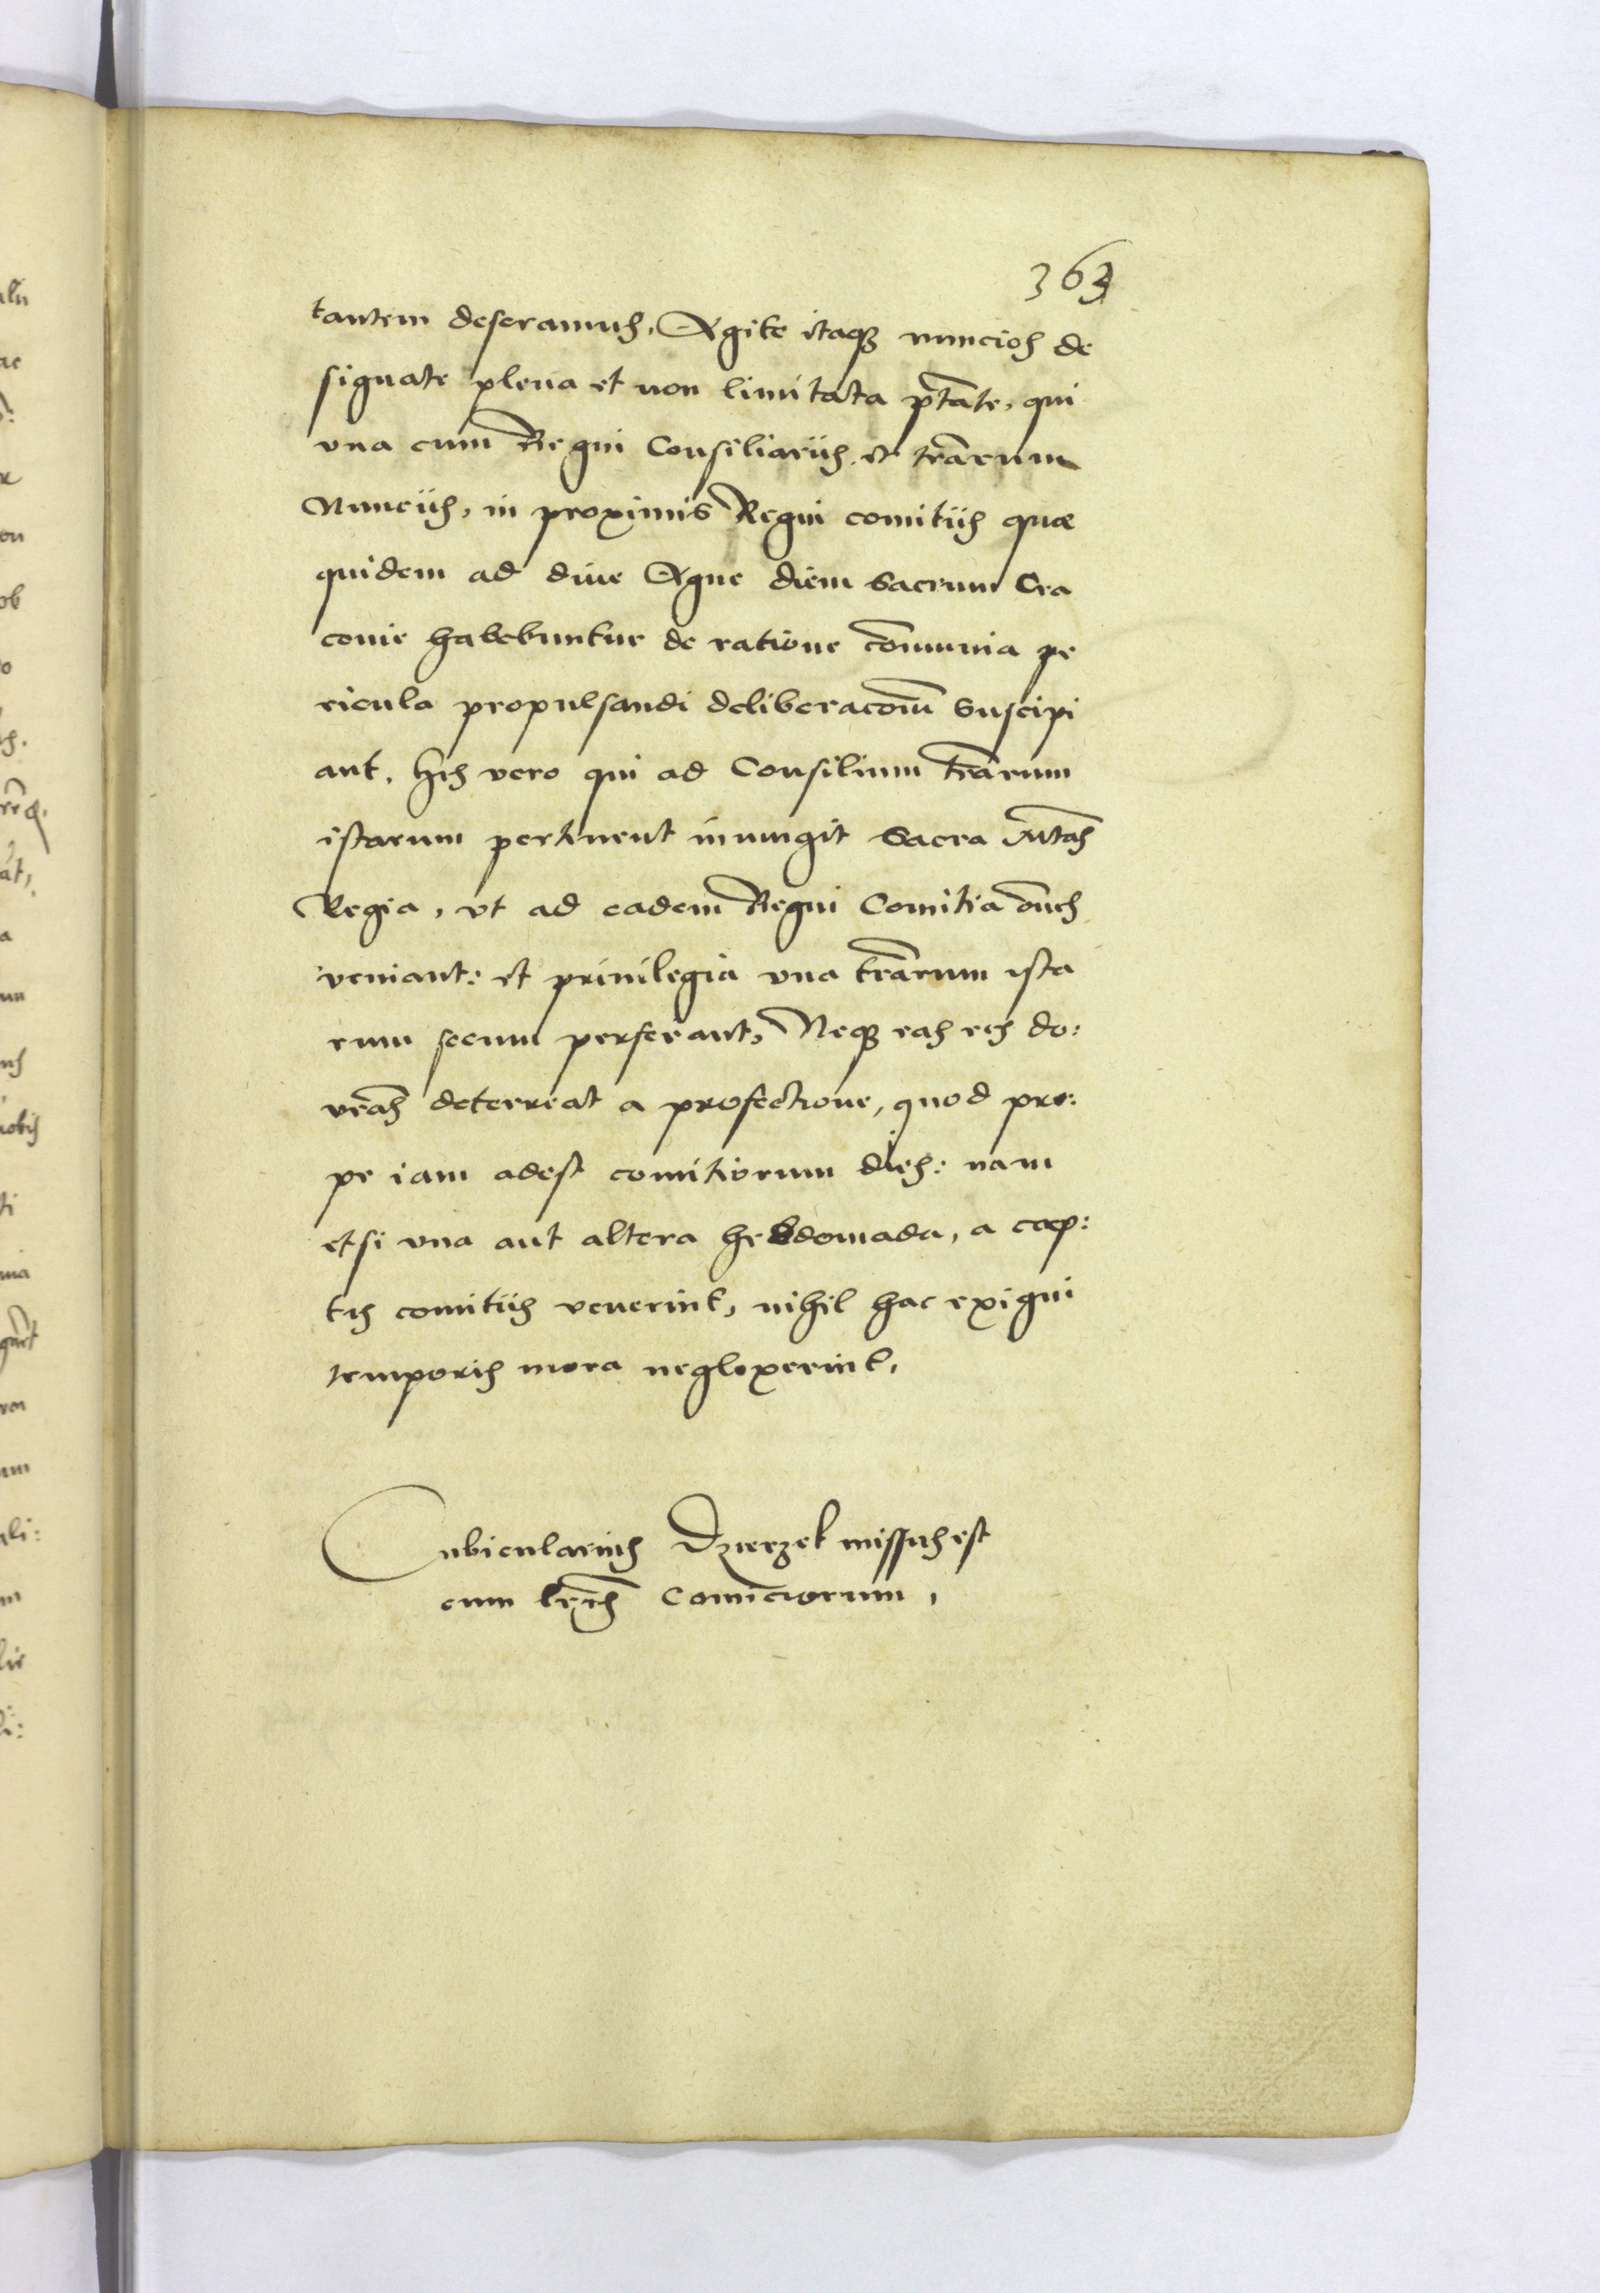 363
tantem deseramus, Agite itaq nuncios de
signate plena et non limitata ptate, qui
vna cum Regni Consiliariis et trarum
Nunciis, in proximis Regni comitiis quae
quidem ad diue Agne diem Sacrum Cra
couie habebuntur de ratione comunia pe
ricula propulsandi deliberacom Suscipi
ant, his vero qui ad Consilium trarum
istarum pertinent iniungit Sacra Mtas
Regia, vt ad eadem Regni Comitia omes
veniant: et priuilegia vna trarum ista
rum secum perferant, Neq eas res do:
vras deterreat a profectione, quod pro:
pe iam adest comitiorum dies: nam
etsi vna aut altera hebdomada, a caep:
tis comitiis venerint, nihil hac exigui
temporis mora neglexerint,
Cubicularius Dzierzek missus est
cum lris Conuiciorum,